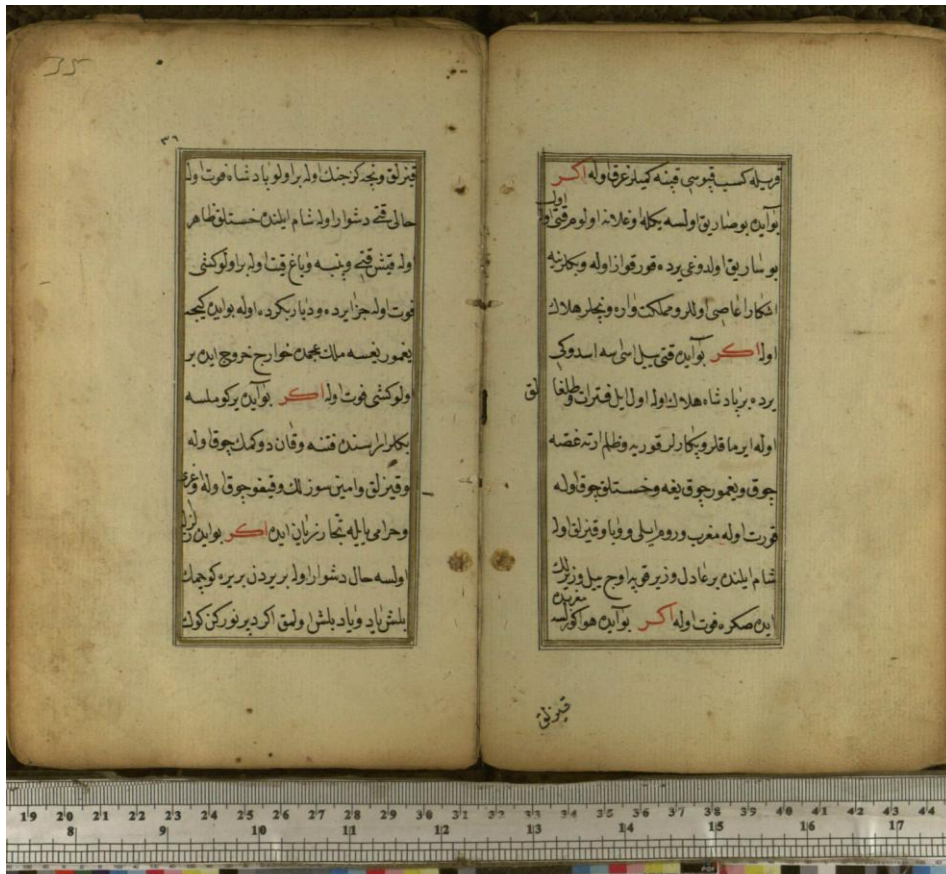 قریله کسب قپوسی قپنه کمیلر غرق اوله اکر
بو آیده بوصاریق اولسه بکله اوغلانه اولوم قتی اوله
بو ساریق اولدوغی یرده قورقو از اوله و بکلرنه
اشکارا عاصی اولر و مملکت واره و نجلر هلاك
اوله اکر بو آیده قتی ییل اسی سه اسدوکی
یرده بر پادشاه هلاك اوله اول ایل فترات و طلغا
لق
اوله ایرماقلر و بکارلر قوریه و ظلم ارته غصه
چوق و یغمور چوق یغه و خستلق چوق اوله
قورت اوله مغرب و روم ایلی و وبا و قیزلق اوله
شام ایلنده بر عادل وزیر قپه اوچ ییل وزیرلك
ایده صکره فوت اوله اکر بو آیده هوا کورلسه
مغربده
قیزلق
35
٣٦
قیزلق و نجه کز جنك اوله بر اولو پادشاه فوت اوله
حالی قتی دشوار اوله شام ایلنده خستلق ظاهر
اوله قیش قتی و پنبه و یاغ قیت اوله بر اولو کشی
فوت اوله جزایرده و دیار بکرده اوله بو ایده کیجه
یغمور یغسه ملك عجمده خوارج خروج ایده بر
اولو کشی فوت اوله اکر بو آیده بر کوملسه
بکلر اراسنده فتنه و قان دوکمك چوق اوله
و قیزلق و امین سوزلك و قیغو چوق اوله اوغری
و حرامی یایله تجار زیان ایده اکر بو ایده زلزله
اولسه حال دشوار اوله بریردن بریره کوچمك
بلش یاد و یاد بلش اولمق اکر دیر نور کن کوك